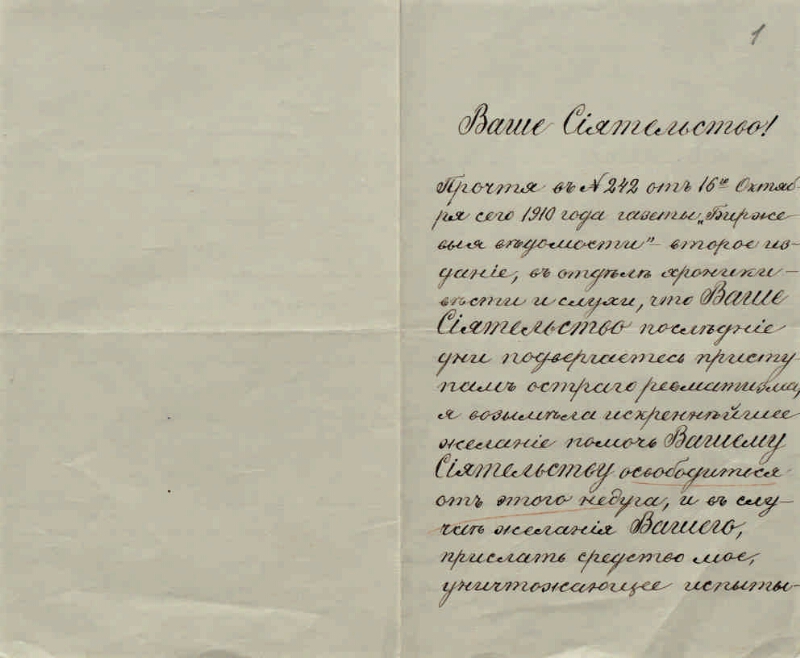 1
Ваше Сіятельство!
Прочтя въ № 242 отъ 16го Октяб-
ря сего 1910 года газеты „Бирже-
выя вѣдомости" - второе из-
даніе, въ отдѣлѣ хроники -
вѣсти и слухи, что Ваше
Сіятельство послѣдніе
дни подвергаетесь присту-
памъ остраго ревматизма,
я возымѣла искреннѣйшее
желаніе помочь Вашему
Сіятельству освободиться
отъ этого недуга, и въ слу-
чаѣ желанія Вашего,
прислать средство мое,
уничтожающее испыты-